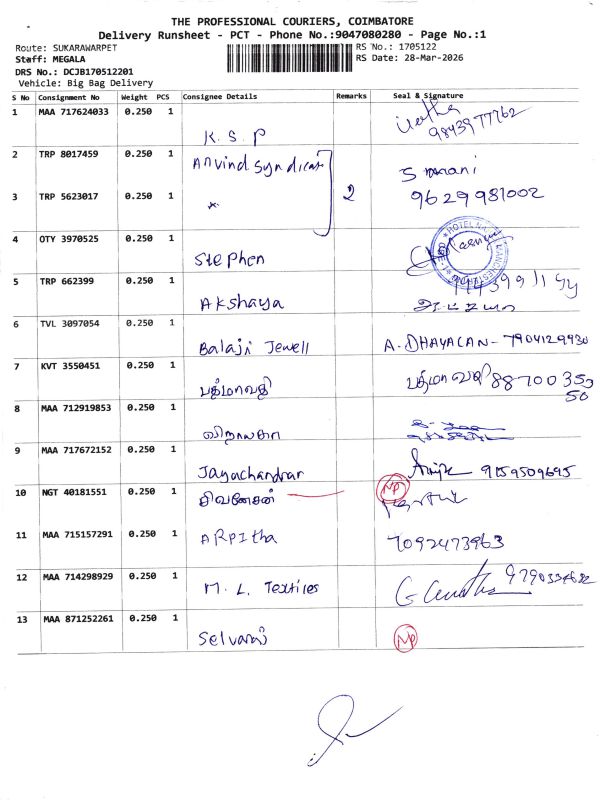 THE PROFESSIONAL COURIERS, COIMBATORE
Delivery Runsheet - PCT - Phone No.:9047080280 - Page No.:1
Route: SUKARAWARPET
RS No.: 1705122
Staff: MEGALA
RS Date: 28-Mar-2026
DRS No.: DCJB170512201
Vehicle: Big Bag Delivery
S No Consignment No Weight PCS Consignee Details Remarks Seal & Signature
1 MAA 717624033 0.250 1 K.S.P 9843977762
2 TRP 8017459 0.250 1 Arvind Syndicate 2 S mani
3 TRP 5623017 0.250 1 9629981002
4 OTY 3970525 0.250 1 Stephen
5 TRP 662399 0.250 1 Akshaya
6 TVL 3097054 0.250 1 Balaji Jewell A. DHAYALAN - 7904129930
7 KVT 3550451 0.250 1 பத்மாவதி பத்மாவதி 88700 350
50
8 MAA 712919853 0.250 1
9 MAA 717672152 0.250 1 Jayachandran 9159509695
10 NGT 40181551 0.250 1 சிவனேசன் NP
11 MAA 715157291 0.250 1 ARPitha 7092473963
12 MAA 714298929 0.250 1 M. L. Textiles
13 MAA 871252261 0.250 1 Selvaraj NP